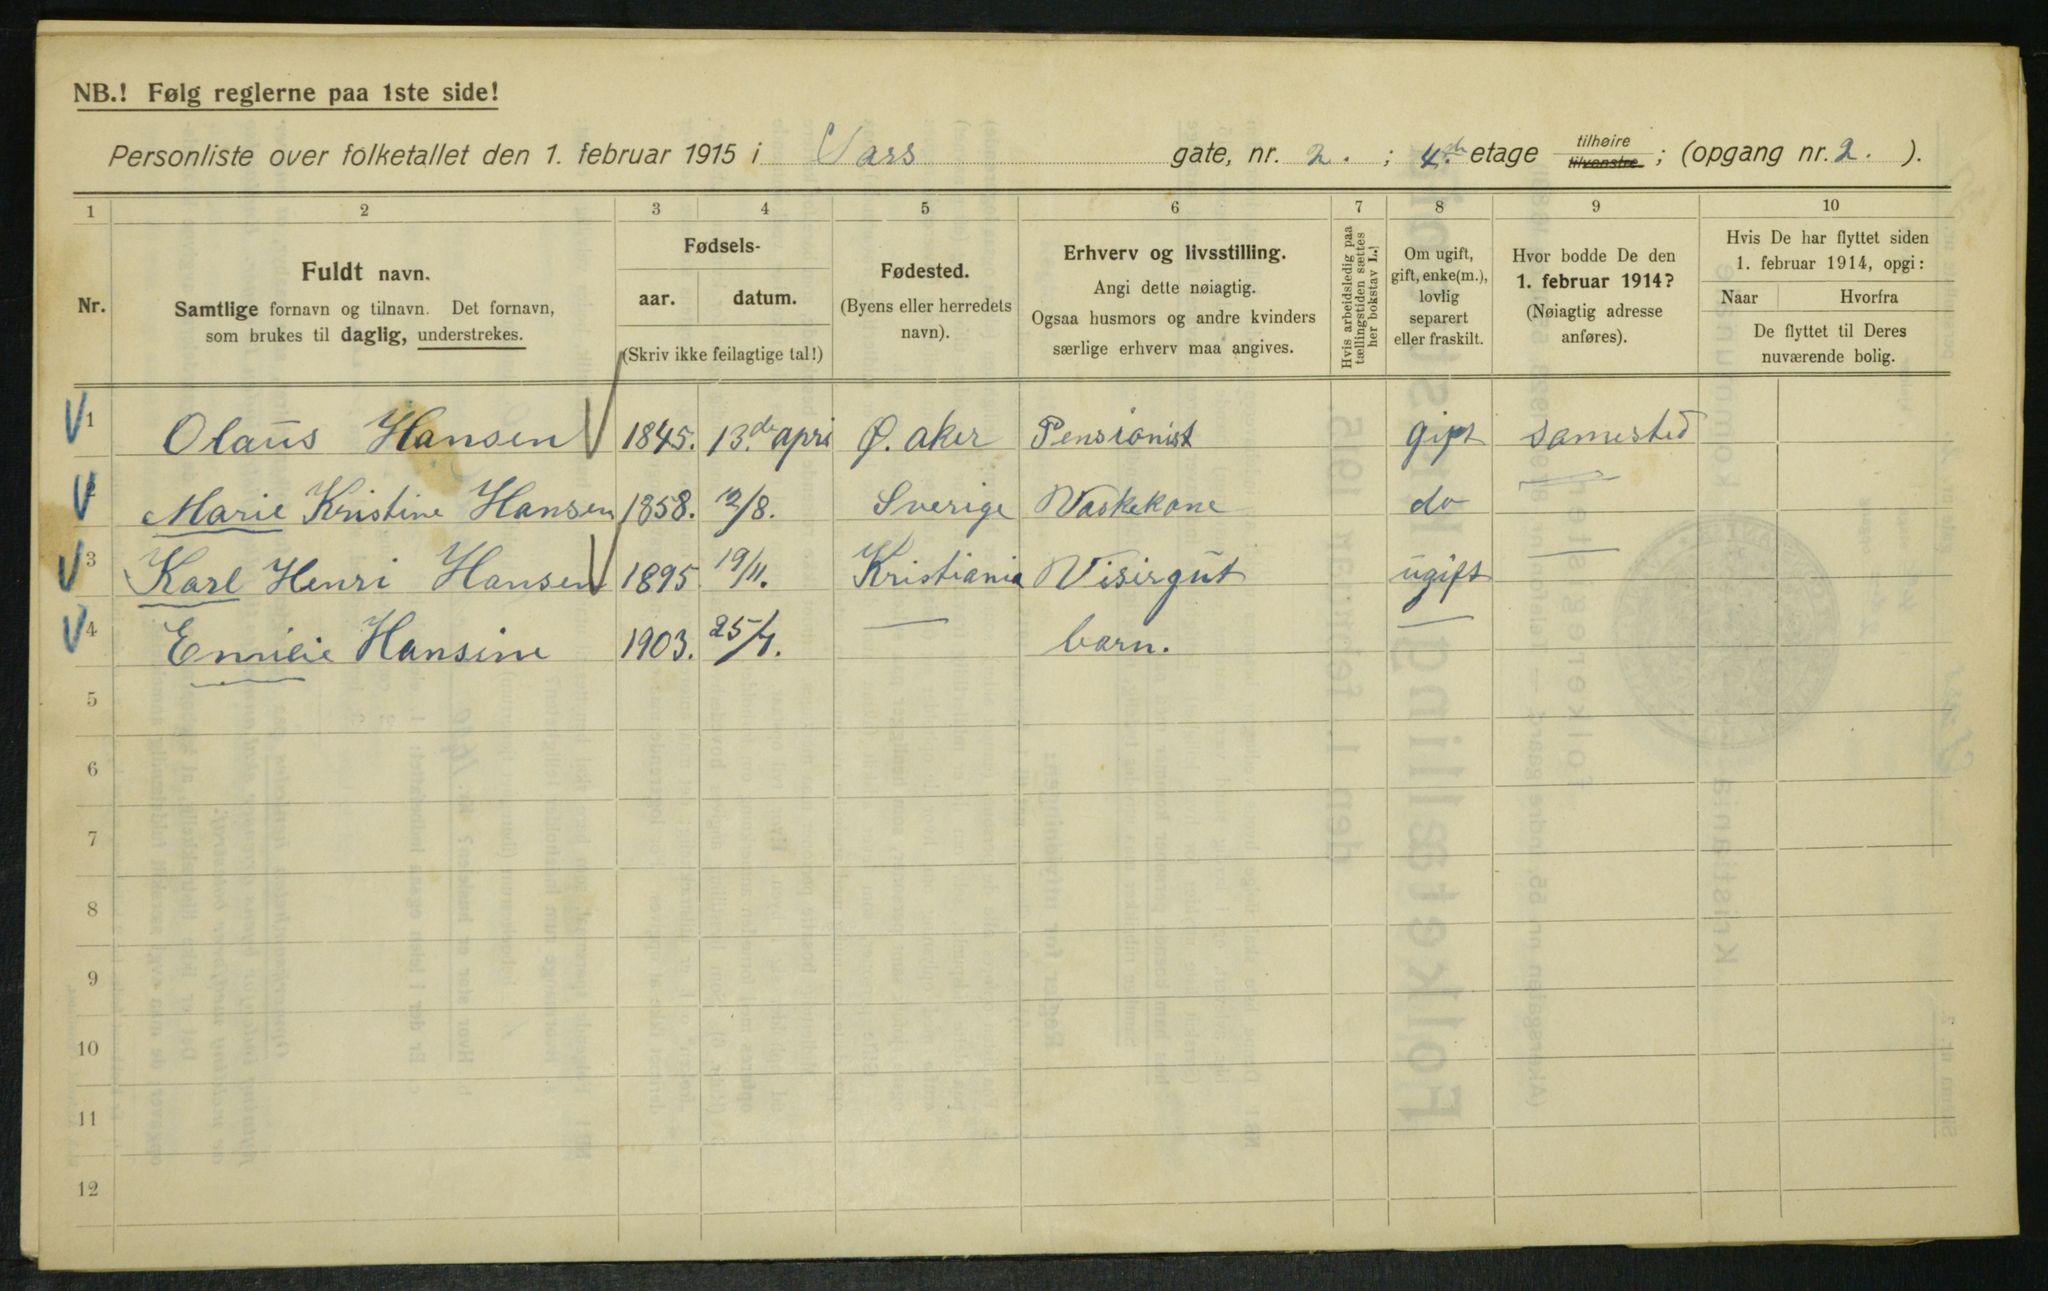 NB.! Følg reglerne paa 1ste side!
Personliste over folketallet den 1. februar 1915 i Sars gate, nr. 2. ; 4. etage tilhøire tilvenstre ; (opgang nr. 2. ).
1 2 3 4 5 6 7 8 9 10
Nr.
Fuldt navn.
Samtlige fornavn og tilnavn. Det fornavn,
som brukes til daglig, understrekes.
Fødsels-
aar. datum.
(Skriv ikke feilagtige tal!)
Fødested.
(Byens eller herredets
navn).
Erhverv og livsstilling.
Angi dette nøiagtig.
Ogsaa husmors og andre kvinders
særlige erhverv maa angives.
Hvis arbeidsledig paa
tællingstiden sættes
her bokstav L.!
Om ugift,
gift, enke(m.),
lovlig
separert
eller fraskilt.
Hvor bodde De den
1. februar 1914?
(Nøiagtig adresse
anføres).
Hvis De har flyttet siden
1. februar 1914, opgi:
Naar Hvorfra
De flyttet til Deres
nuværende bolig.
1 Olaus Hansen 1845. 13.de apri Ø. aker Pensionist gift samested
2 Marie Kristine Hansen 1858. /8. Sverige Vaskekone do —
3 Karl Henri Hansen 1895 19/11. Kristiania Visirgut ugift —
4 Emilie Hansine 1903. 25/ — barn. —
5
6
7
8
9
10
11
12